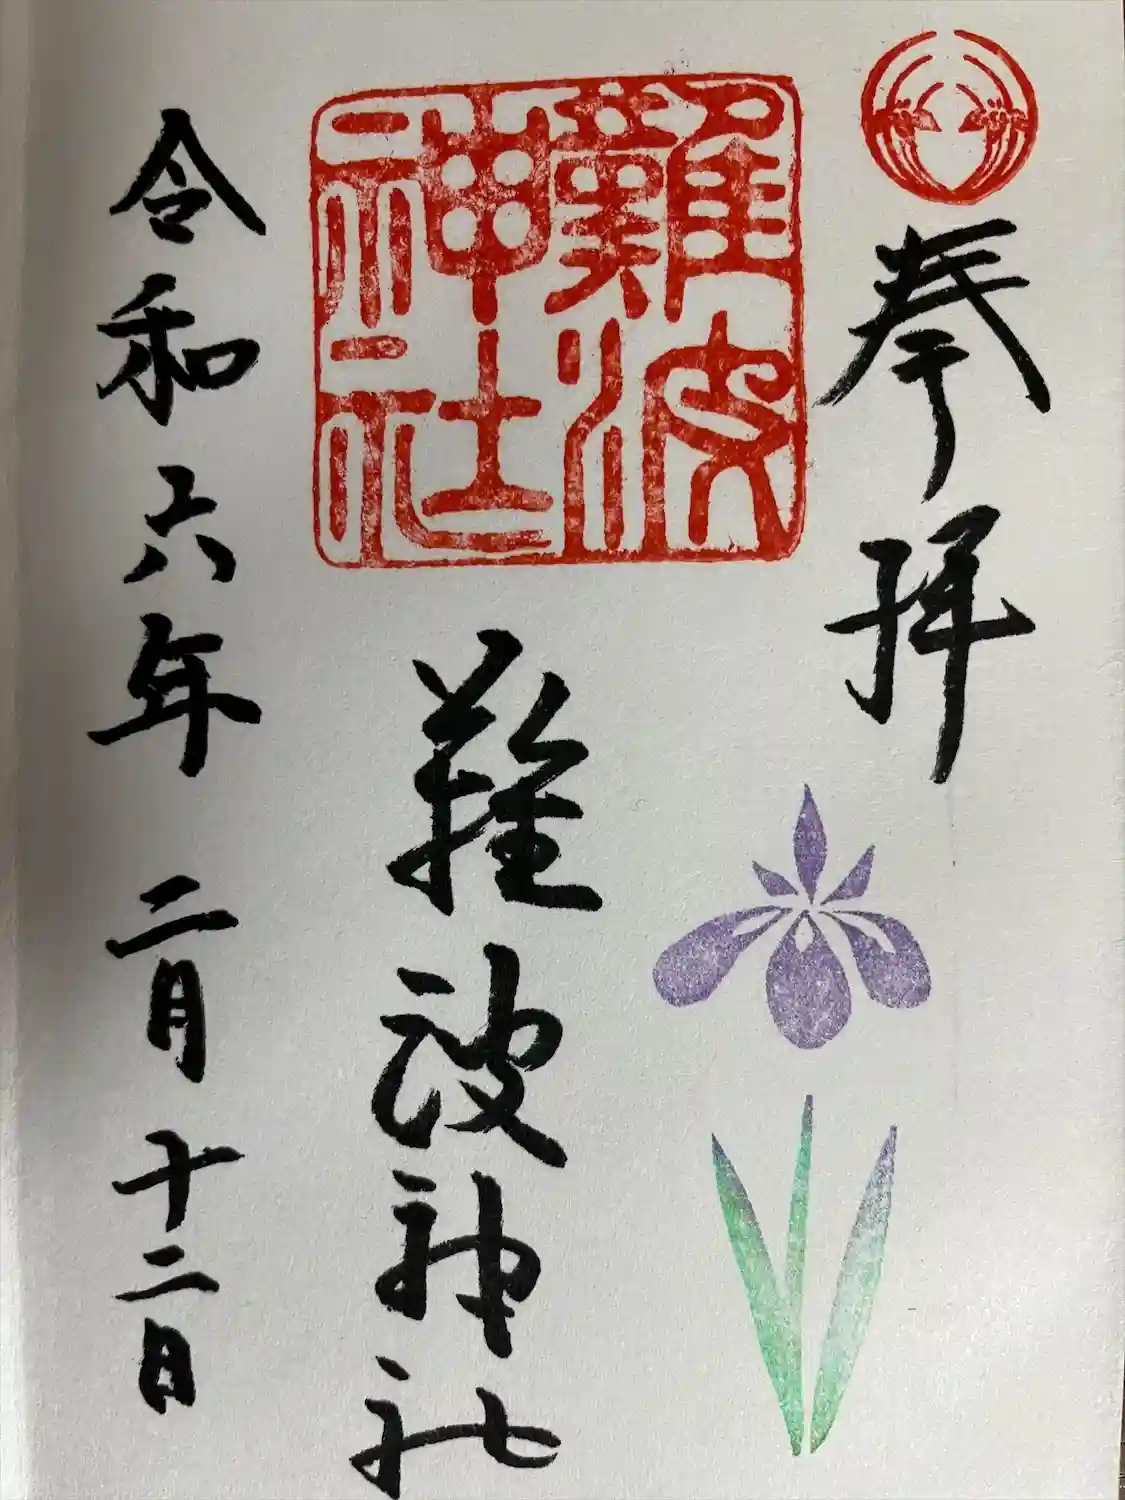 奉拝
難波神社
難波神社
令和六年 二月十二日